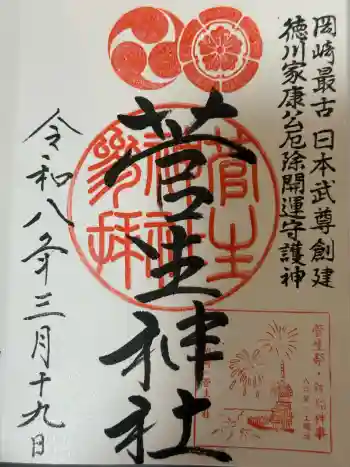 岡崎最古 日本武尊創建
徳川家康公厄除開運守護神
菅生神社
菅生神社参拝
令和八年三月十九日